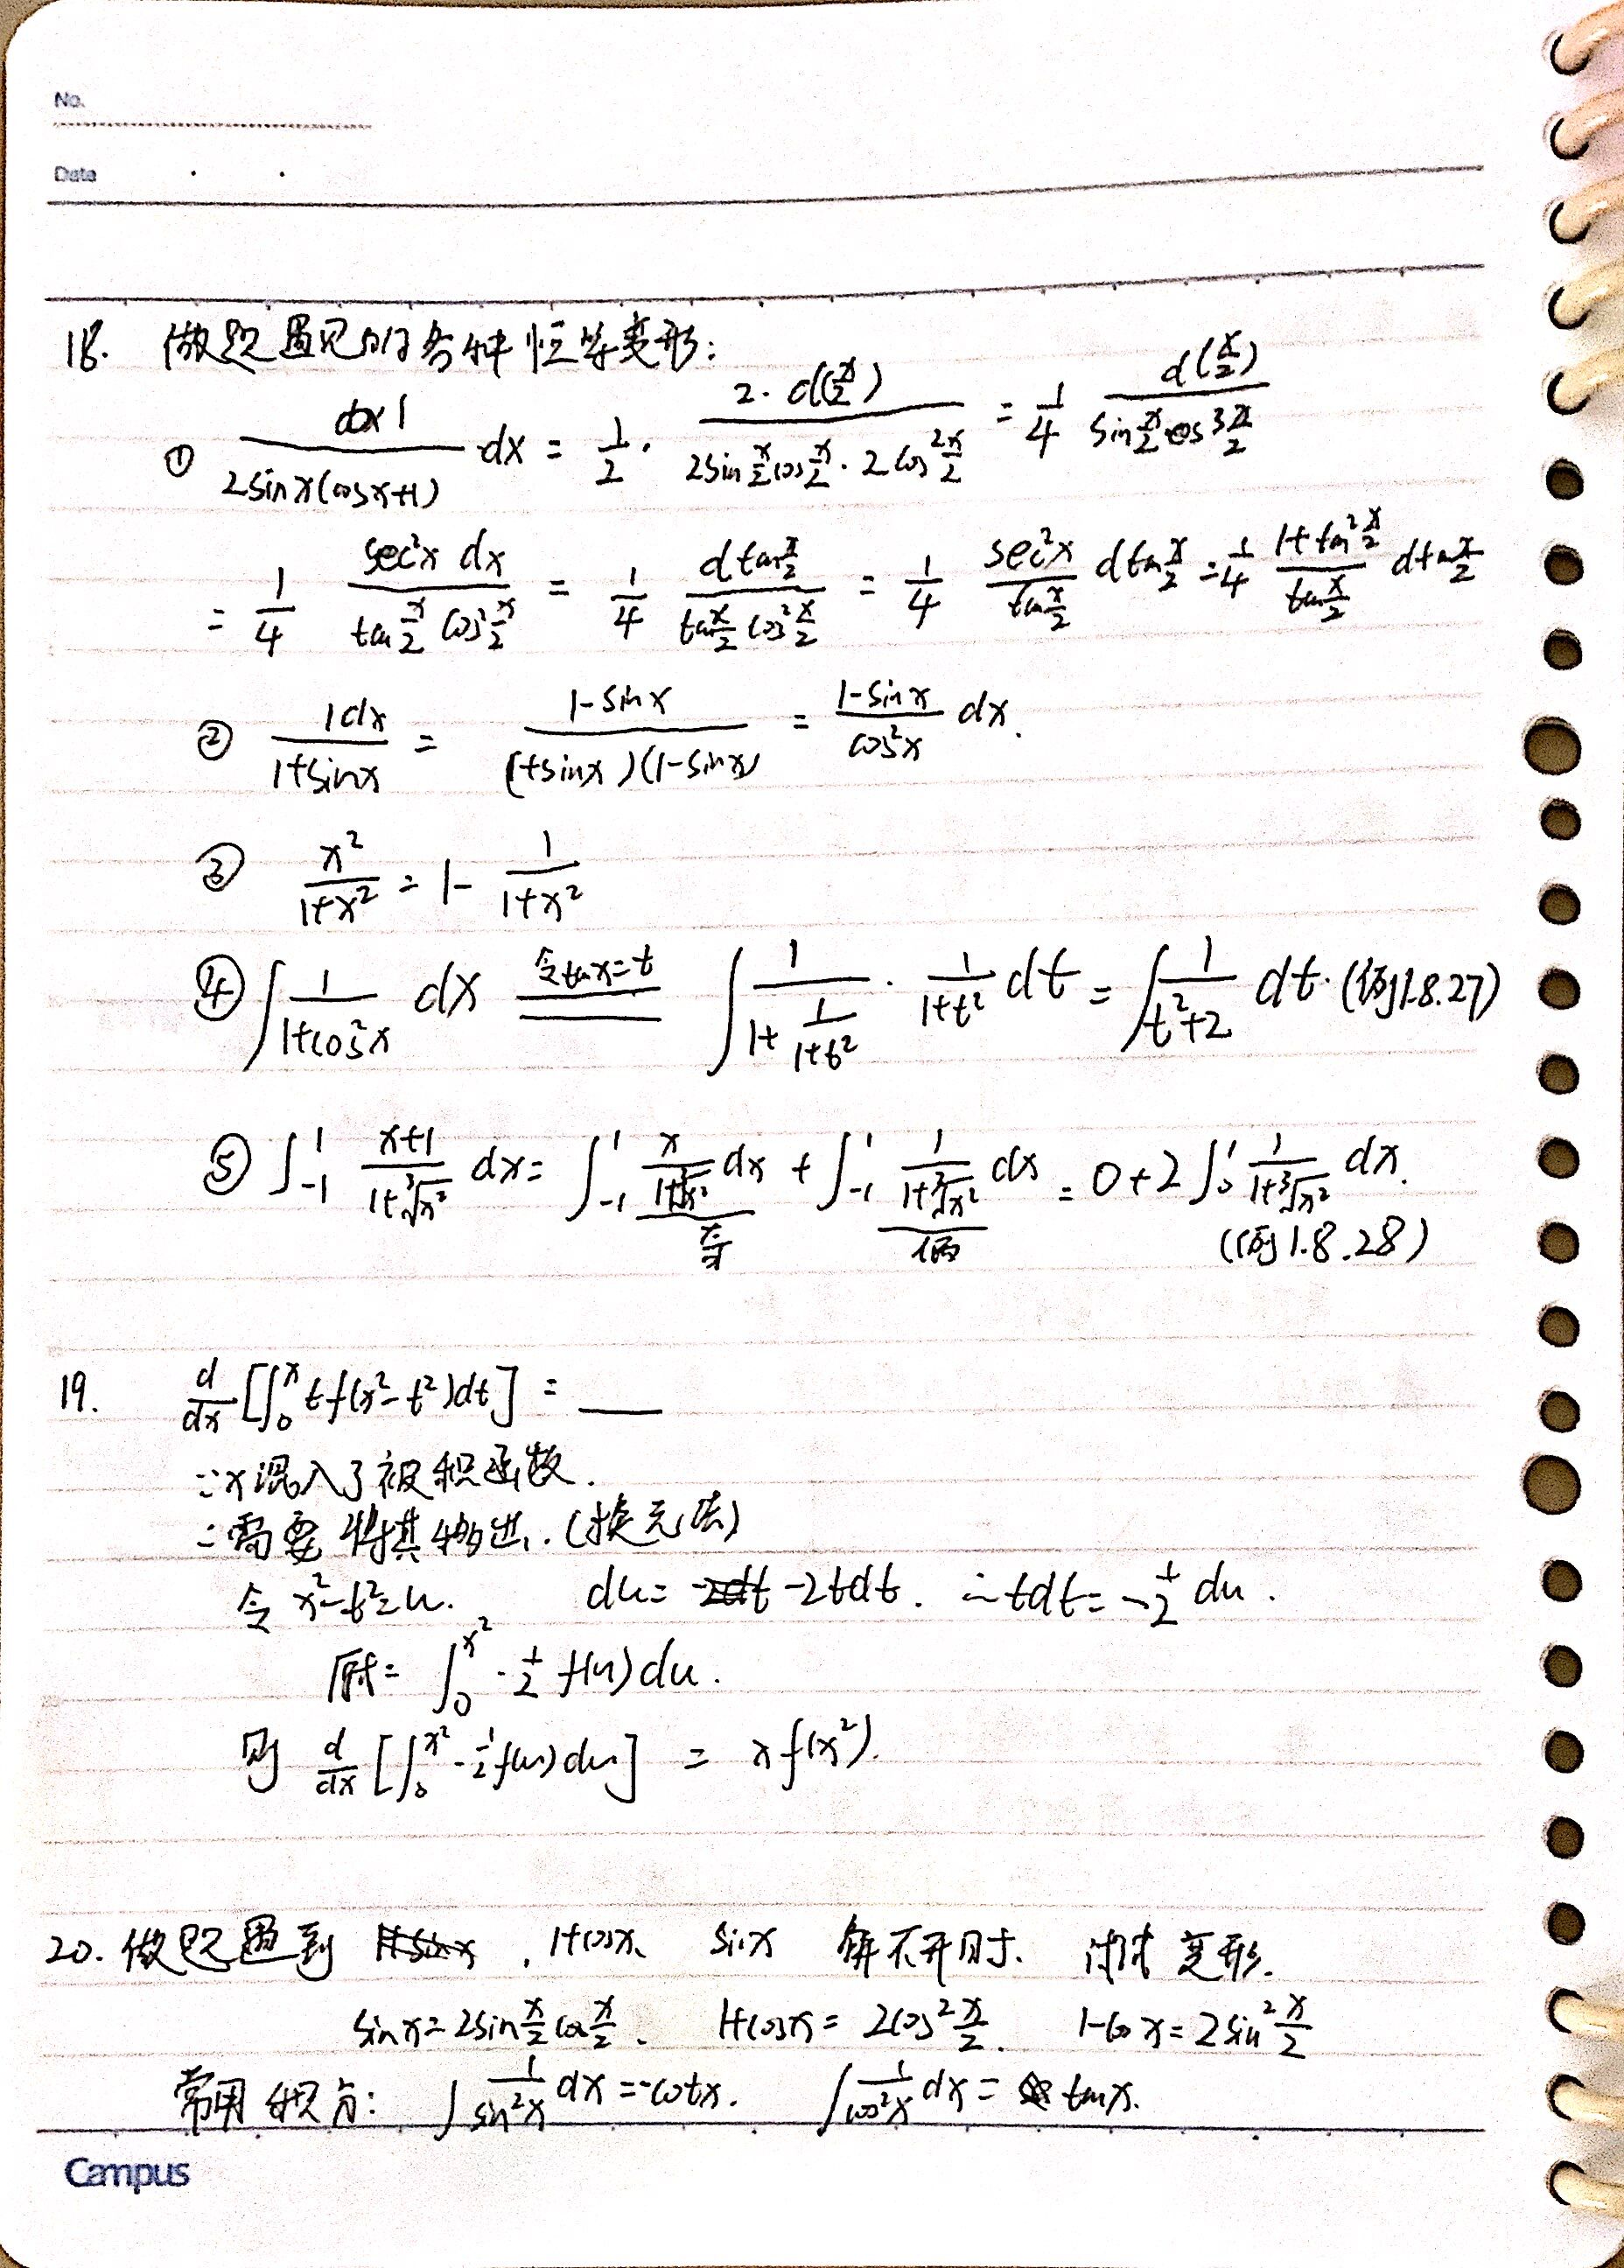 No.
Date
18. 做题遇见的各种恒等变形:
① \frac{1}{2sinx(cosx+1)} dx = \frac{1}{2} · \frac{2·d(\frac{x}{2})}{2sin\frac{x}{2}cos\frac{x}{2}·2cos^2\frac{x}{2}} = \frac{1}{4} \frac{d(\frac{x}{2})}{sin\frac{x}{2}cos^3\frac{x}{2}}
= \frac{1}{4} \frac{sec^2x dx}{tan\frac{x}{2}cos^2\frac{x}{2}} = \frac{1}{4} \frac{dtan\frac{x}{2}}{tan\frac{x}{2}cos^2\frac{x}{2}} = \frac{1}{4} \frac{sec^2x}{tan\frac{x}{2}} dtan\frac{x}{2} = \frac{1}{4} \frac{1+tan^2\frac{x}{2}}{tan\frac{x}{2}} dtan\frac{x}{2}
② \frac{1dx}{1+sinx} = \frac{1-sinx}{(1+sinx)(1-sinx)} = \frac{1-sinx}{cos^2x} dx.
③ \frac{x^2}{1+x^2} = 1- \frac{1}{1+x^2}
④ ∫\frac{1}{1+cos^2x} dx 令tanx=t ∫\frac{1}{1+\frac{1}{1+t^2}} · \frac{1}{1+t^2} dt = ∫\frac{1}{t^2+2} dt. (例1.8.27)
⑤ ∫_{-1}^{1} \frac{x+1}{1+\sqrt[3]{x^2}} dx = ∫_{-1}^{1} \frac{x}{1+\sqrt[3]{x^2}} dx + ∫_{-1}^{1} \frac{1}{1+\sqrt[3]{x^2}} dx = 0+2∫_0^1 \frac{1}{1+\sqrt[3]{x^2}} dx.
奇 偶 (例1.8.28)
19. \frac{d}{dx}[∫_0^x tf(x^2-t^2)dt] = ___
∵x混入了被积函数.
∴需要将其挪出.(换元法)
令 x^2-t^2=u. du= -2tdt. ∴tdt=-\frac{1}{2}du.
原式= ∫_0^{x^2} -\frac{1}{2}f(u)du.
则 \frac{d}{dx}[∫_0^{x^2} -\frac{1}{2}f(u)du] = xf(x^2).
20. 做题遇到 , 1+cosx、 sinx 解不开时、 试试变形.
sinx=2sin\frac{x}{2}cos\frac{x}{2}、 1+cosx=2cos^2\frac{x}{2}. 1-cosx=2sin^2\frac{x}{2}
常用积分: ∫\frac{1}{sin^2x}dx=-cotx. ∫\frac{1}{cos^2x}dx= tanx.
Campus